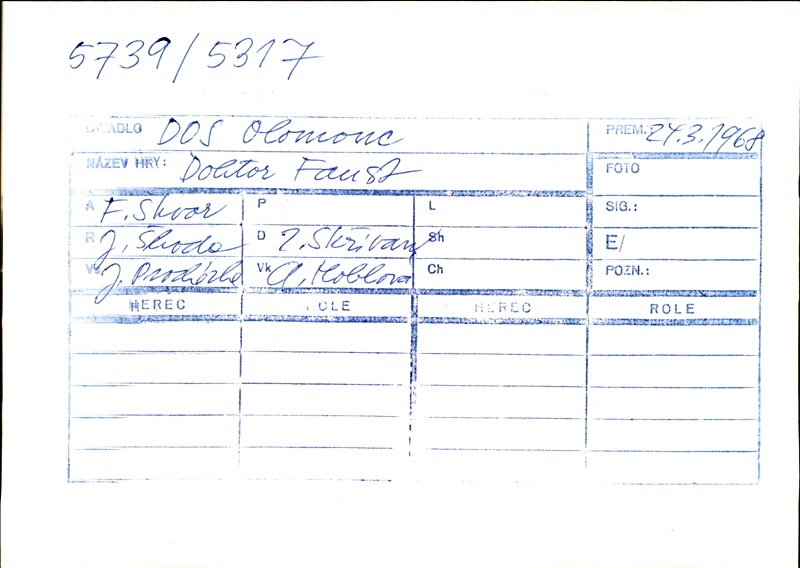 5739/5317
DIVADLO DOS Olomouc PREM.: 24.3.1968
NÁZEV HRY: Doktor Faust FOTO
A F. Škvor P L SIG.:
R J. Škoda D Z. Skřivan Sh E/
V J. Procházka Vk A. Hoblová Ch POZN.:
HEREC ROLE HEREC ROLE